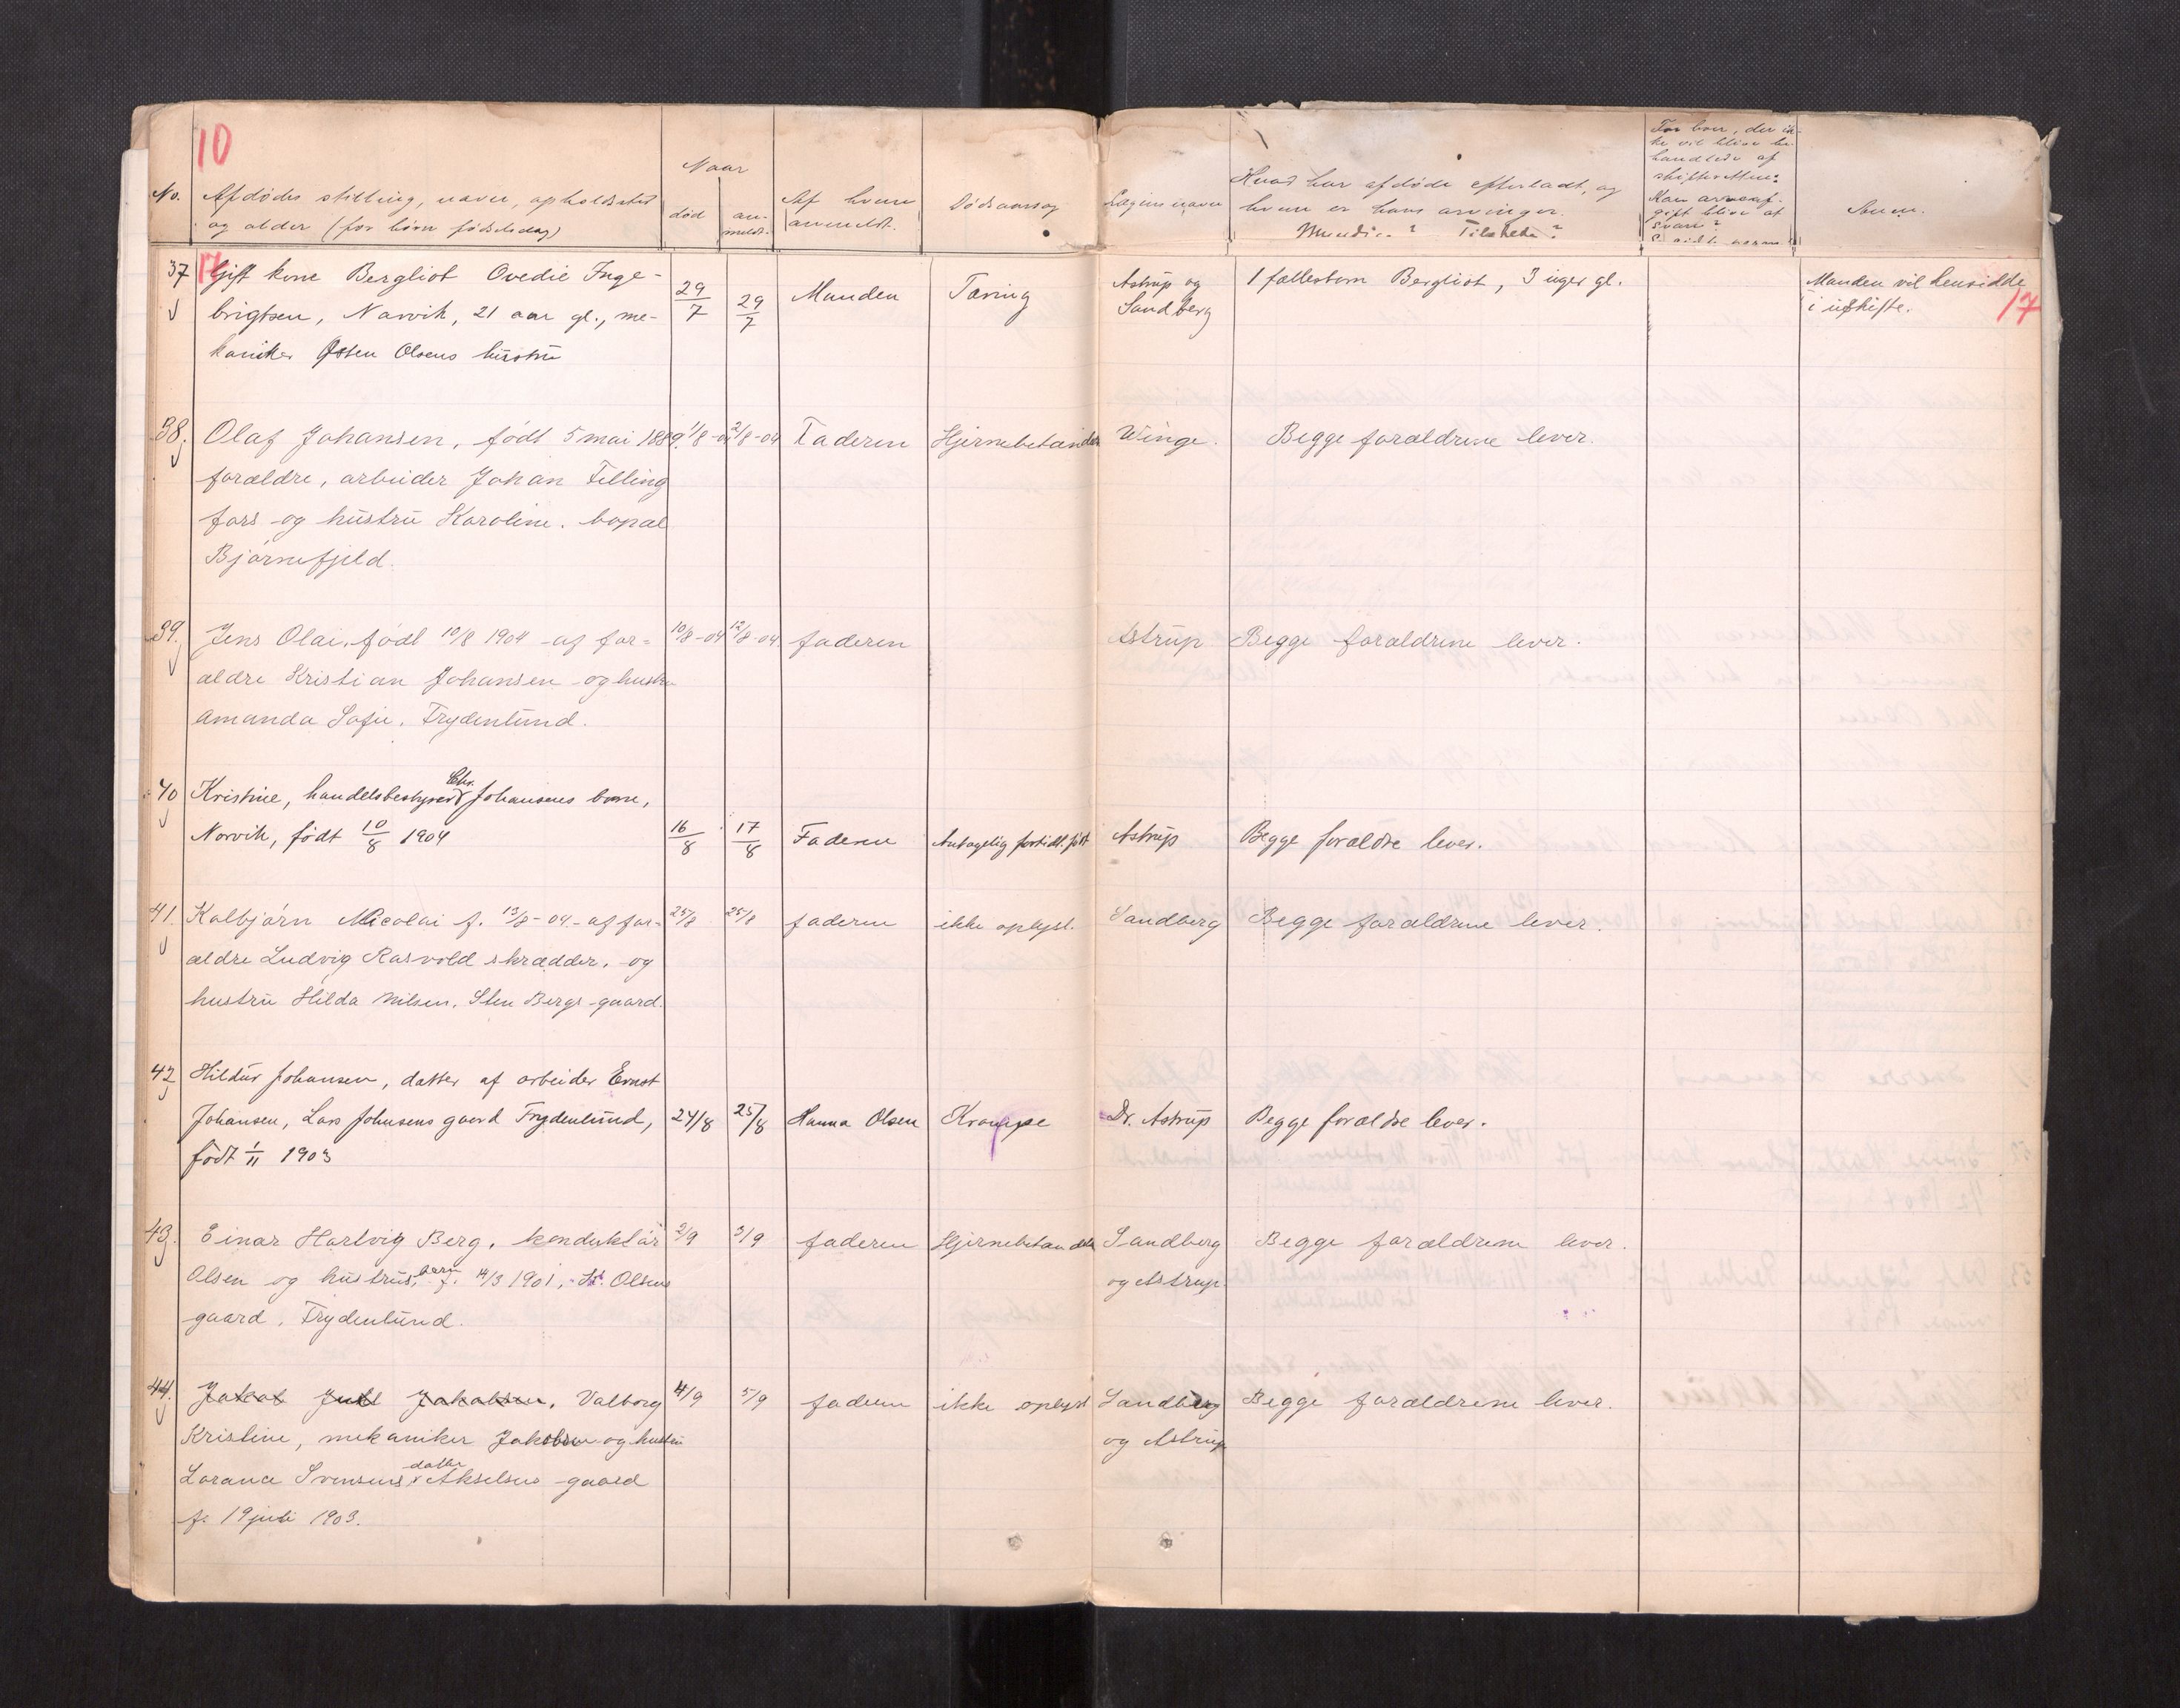 10
No.
Afdødes stilling, navn, opholdssted
og alder (for børn fødselsdag)
Naar
død
an-
meldt.
Af hvem
anmeldt.
Dødsaarsag
Lægens navn
Hvad har afdøde efterladt, og
hvem er hans arvinger.
Myndige? Tilstede?
For boer, der ik-
ke vil blive be-
handlede af
skifteretten:
Kan arveaf-
gift blive at
svare?
Anm.
37 17 Gift kone Bergliot Ovedie Inge-
brigtsen, Narvik, 21 aar gl., me-
kaniker Østen Olsens hustru
29/7 29/7 Manden Tæring
Astrup og
Sandberg
1 fællesbarn Bergliot, 3 uger gl.
Manden vil hensidde
i uskifte. 17
38. Olaf Johansen, født 5 mai 1889. 1/8-04 2/8-04 Faderen Hjernebetændelse Winge. Begge forældrene lever.
forældre, arbeider Johan Felling
fors og hustru Karoline. bopæl
Bjørnefjeld.
39. Jens Olai, født 10/8 1904 af for= 10/8-04 12/8-04. faderen Astrup Begge forældrene lever.
ældre Kristian Johansen og hustru
Amanda Sofie. Frydenlund.
40 Kristine, handelsbestyrer Chr. Johansens barn,
Narvik, født 10/8 1904 16/8 17/8 Faderen Antagelig fortidl. født Astrup Begge forældre lever.
41. Kolbjørn Nicolai f. 13/8-04.- af for- 25/8 25/8 faderen ikke oplyst. Sandberg Begge forældrene lever.
ældre Ludvig Rasvold skrædder. og
hustru Hilda Nilsen. Sten Bergs-gaard.
42 Hildur Johansen, datter af arbeider Ernst
Johansen, Lars Johnsens gaard Frydenlund, 24/8 25/8 Hanna Olsen Krampe Dr. Astrup Begge forældre lever.
født 1/11 1903
43. Einar Hartvig Berg, konduktør 2/9 3/9 faderen Hjernebetændelse Sandberg Begge forældrene lever.
Olsen og hustrus barn f. 14/3 1901, Olsens
og Astrup.
gaard. Frydenlund.
44. Jakob Juhl Jakobsen. Valborg 4/9 5/9 faderen ikke oplyst Sandberg Begge forældrene lever.
Kristine, mekaniker Jakobsen og hustru
og Astrup
Lorance Svensens datter Akselsens gaard
f. 19 juli 1903.